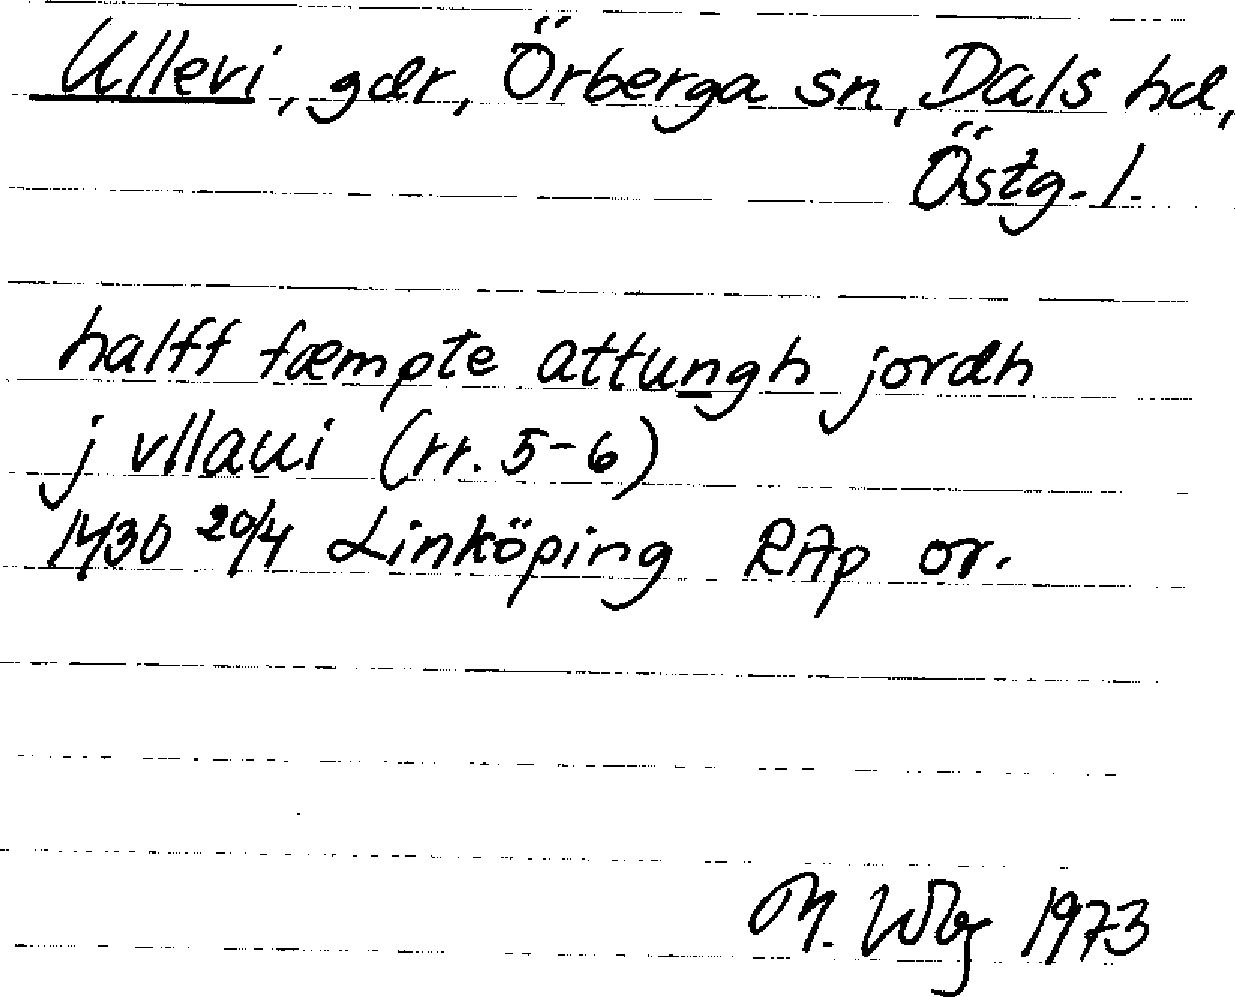 Ullevi, gdr, Örberga sn, Dals hd,
Östg. l.
halff fæmpte attungh jordh
j vllaui (rr. 5-6)
1430 20/4 Linköping RAp or.
M. Wbg 1973